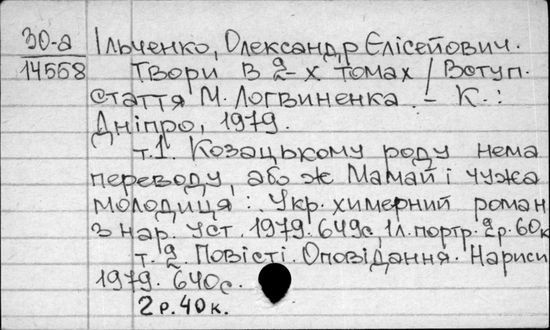 30-а Ільченко, Олександр Єлісейович.
14558 Твори в 2-х томах / Вступ.
стаття М. Логвиненка. – К.:
Дніпро, 1979.
т.1. Козацькому роду нема
переводу, або ж Мамай і чужа
молодиця: Укр. химерний роман
з нар. уст. 1979. 649с, 1л. портр. 2р. 60к
т. 2. Повісті. Оповідання. Нариси
1979. 640с.
2р. 40к.